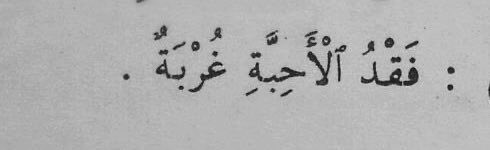 : فَقْدُ ٱلْأَحِبَّةِ غُرْبَةٌ .